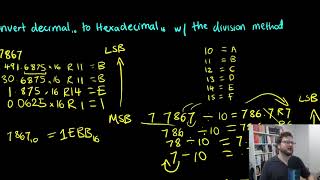 nvert decimal₁₀ to Hexadecimal₁₆ w/ the division method
7867
491.6875 ×16 R 11 = B
30.6875 ×16 R 11 = B
1.875 ×16 R14 = E
0.0625 ×16 R 1 = 1
LSB
MSB
7867₁₀ = 1EBB₁₆
10 = A
11 = B
12 = C
13 = D
14 = E
15 = F
7 7867 ÷ 10 = 786 R7
786 ÷ 10 =
78 ÷ 10 =
7 ÷ 10 =
LSB